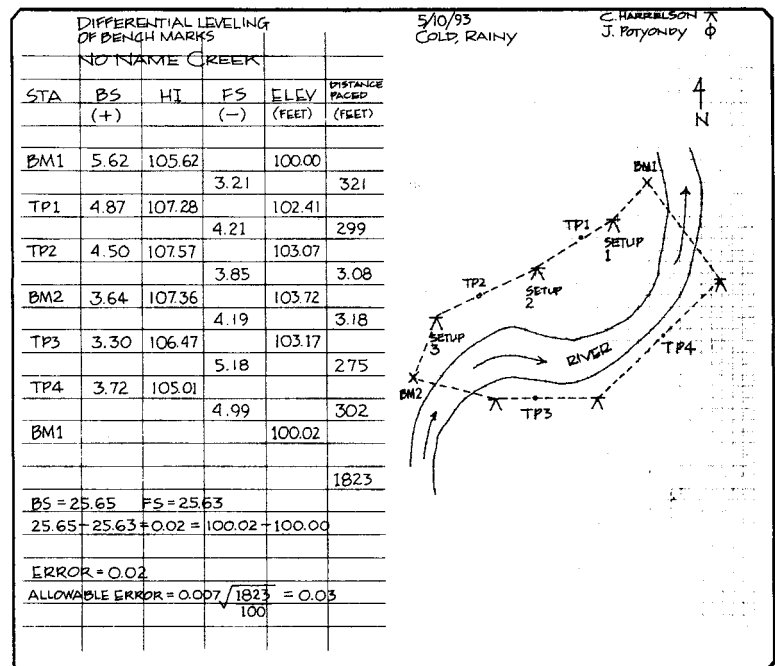 DIFFERENTIAL LEVELING
OF BENCH MARKS
NO NAME CREEK
STA BS HI FS ELEV DISTANCE PACED
(+) (−) (FEET) (FEET)
BM1 5.62 105.62 100.00
3.21 321
TP1 4.87 107.28 102.41
4.21 299
TP2 4.50 107.57 103.07
3.85 3.08
BM2 3.64 107.36 103.72
4.19 3.18
TP3 3.30 106.47 103.17
5.18 275
TP4 3.72 105.01
4.99 302
BM1 100.02
1823
BS = 25.65 FS = 25.63
25.65 − 25.63 = 0.02 = 100.02 − 100.00
ERROR = 0.02
ALLOWABLE ERROR = 0.007 √1823/100 = 0.03
5/10/93
COLD, RAINY
C. HARRELSON
J. POTYONDY
N
BM1
TP1
SETUP
1
SETUP
2
TP2
SETUP
3
RIVER
TP4
BM2
TP3